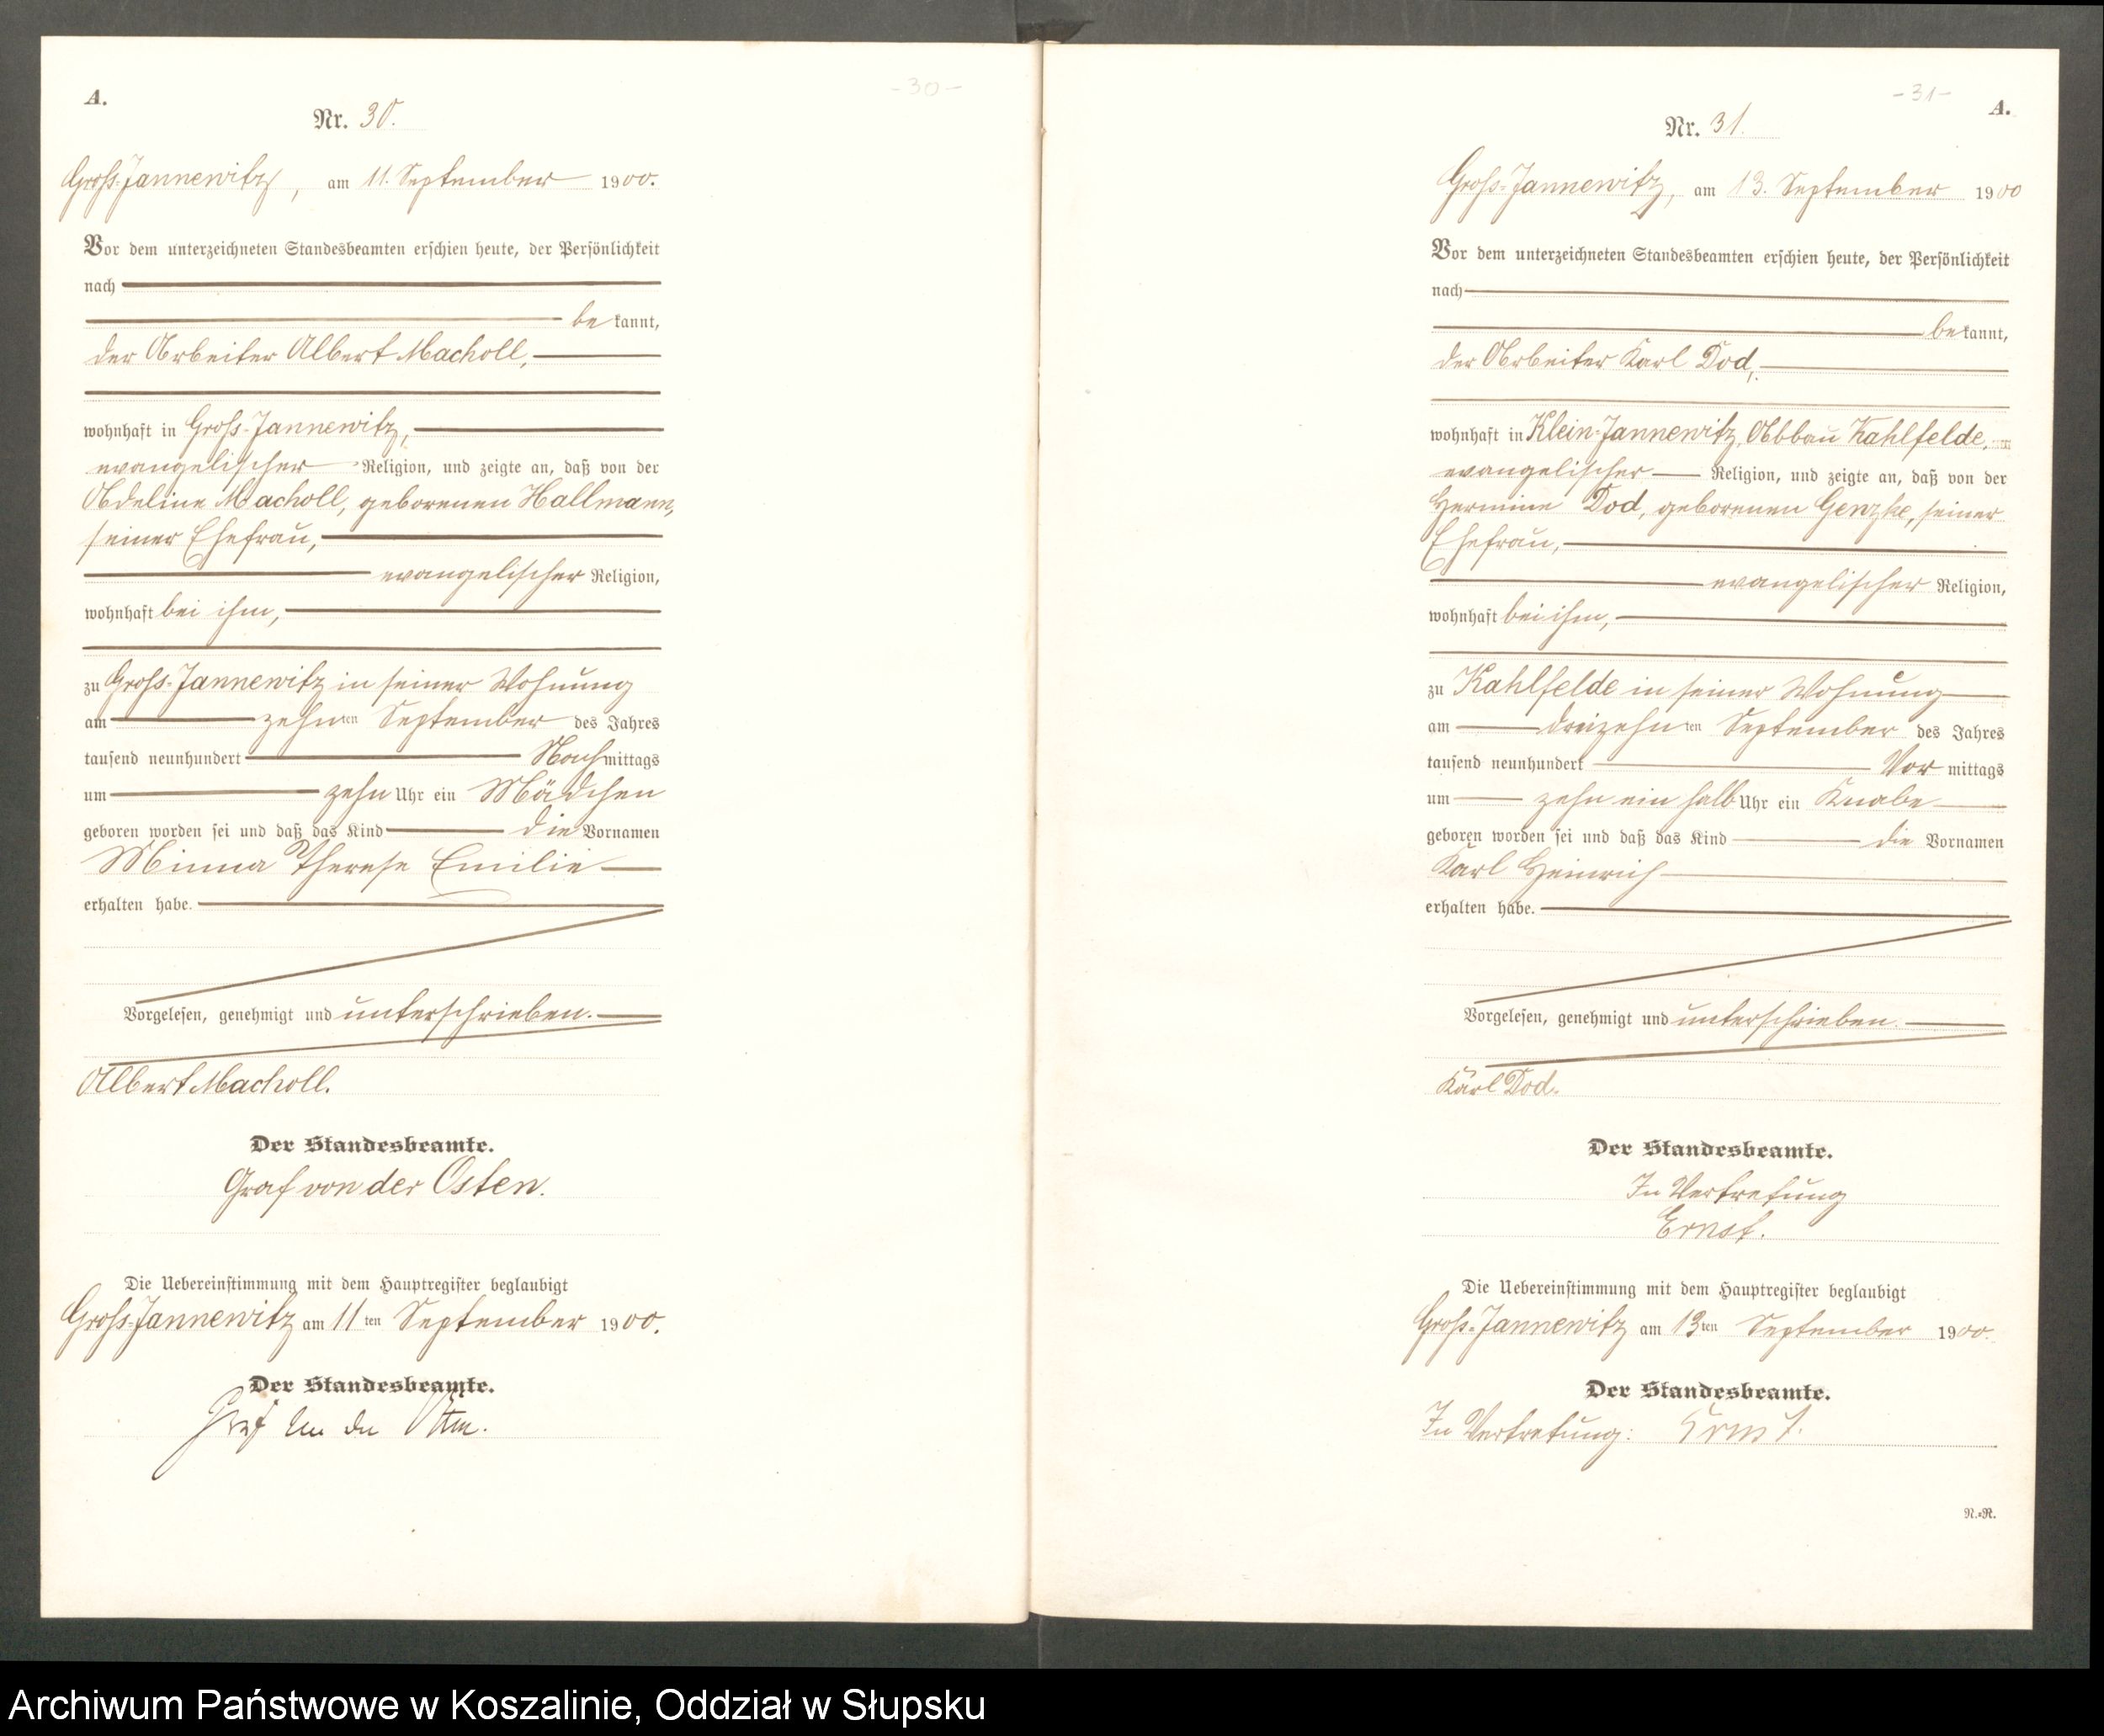 A.
- 30 -
Nr. 30.
Groß-Jannewitz, am 11. September 1900.
Vor dem unterzeichneten Standesbeamten erschien heute, der Persönlichkeit
nach
bekannt,
der Arbeiter Albert Macholl,
wohnhaft in Groß-Jannewitz,
evangelischer Religion, und zeigte an, daß von der
Adeline Macholl, geborenen Hallmann,
seiner Ehefrau,
evangelischer Religion,
wohnhaft bei ihm,
zu Groß-Jannewitz in seiner Wohnung
am zehnten September des Jahres
tausend neunhundert Nachmittags
um zehn Uhr ein Mädchen
geboren worden sei und daß das Kind die Vornamen
Minna Therese Emilie
erhalten habe.
Vorgelesen, genehmigt und unterschrieben.
Albert Macholl.
Der Standesbeamte.
Graf von der Osten.
Die Uebereinstimmung mit dem Hauptregister beglaubigt
Groß-Jannewitz am 11ten September 1900.
Der Standesbeamte.
Graf von der Osten.
- 31 -
A.
Nr. 31.
Groß-Jannewitz, am 13. September 1900
Vor dem unterzeichneten Standesbeamten erschien heute, der Persönlichkeit
nach
bekannt,
der Arbeiter Karl Dod,
wohnhaft in Klein-Jannewitz, Abbau Kahlfelde,
evangelischer Religion, und zeigte an, daß von der
Hermine Dod, geborenen Genzke, seiner
Ehefrau,
evangelischer Religion,
wohnhaft bei ihm,
zu Kahlfelde in seiner Wohnung
am dreizehnten September des Jahres
tausend neunhundert Vormittags
um zehn ein halb Uhr ein Knabe
geboren worden sei und daß das Kind die Vornamen
Karl Heinrich
erhalten habe.
Vorgelesen, genehmigt und unterschrieben.
Karl Dod.
Der Standesbeamte.
In Vertretung
Ernst.
Die Uebereinstimmung mit dem Hauptregister beglaubigt
Groß-Jannewitz am 13ten September 1900.
Der Standesbeamte.
In Vertretung: Ernst.
N.=R.
Archiwum Państwowe w Koszalinie, Oddział w Słupsku